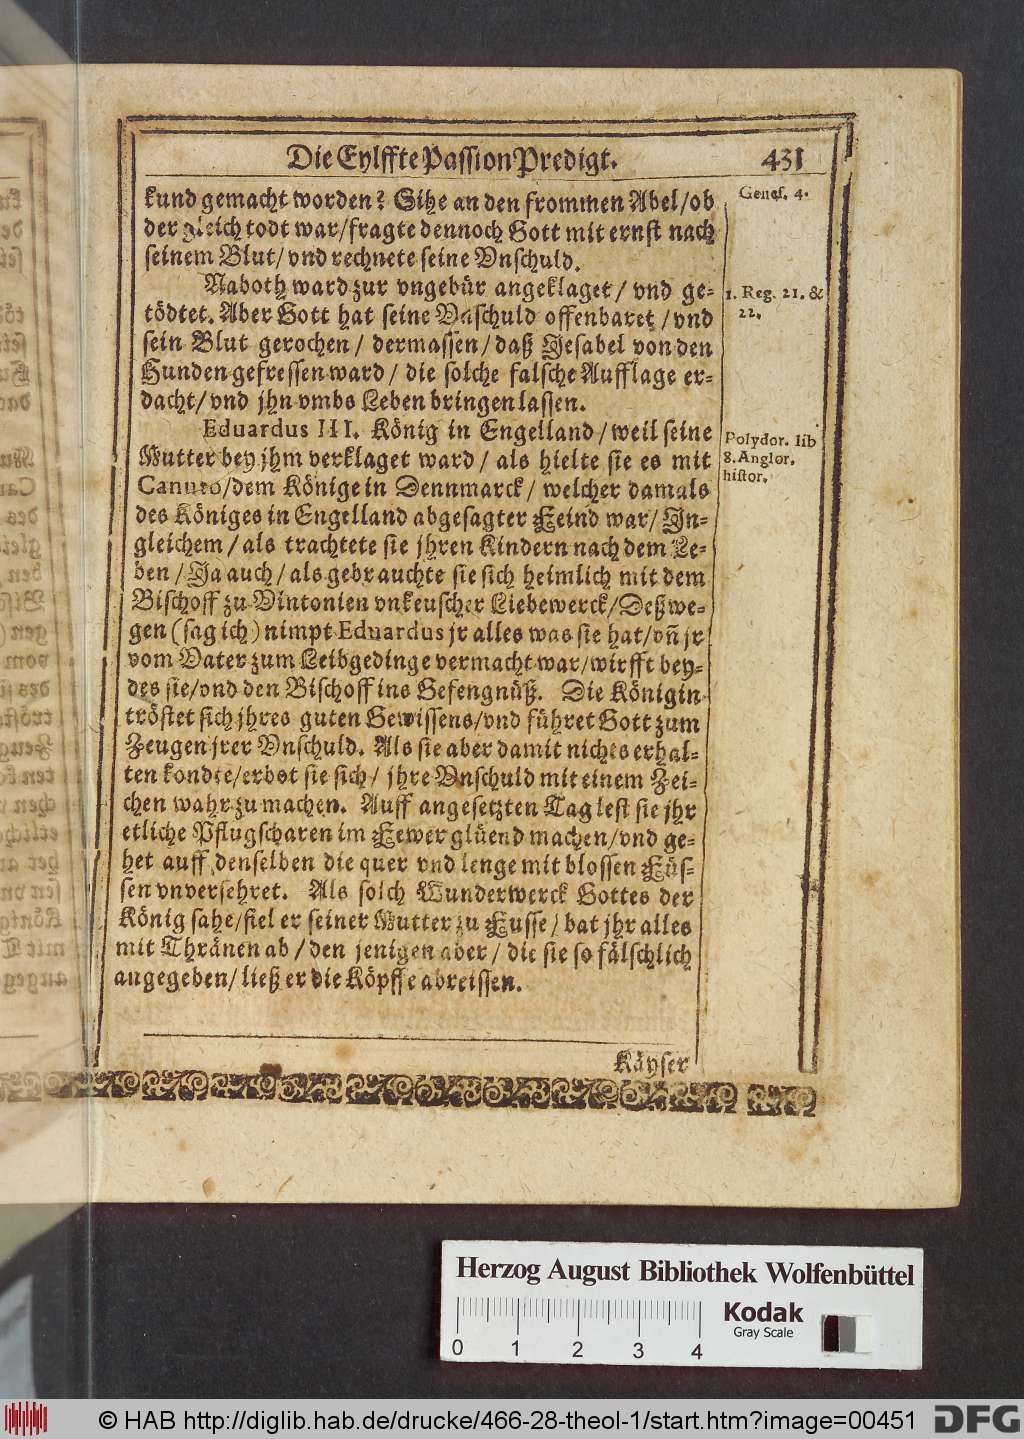 Die Eylffte Passion Predigt. 431
kund gemacht worden? Sihe an den frommen Abel/ob
der gleich todt war/fragte dennoch Gott mit ernst nach
seinem Blut/ vnd rechnete seine Vnschuld.
Naboth ward zur vngebür angeklaget/ vnd ge-
tödtet. Aber Gott hat seine Vnschuld offenbaret/vnd
sein Blut gerochen/ dermassen/daß Jesabel von den
Hunden gefressen ward/ die solche falsche Aufflage er-
dacht/vnd jhn vmbs Leben bringen lassen.
Eduardus III. König in Engelland/weil seine
Mutter bey jhm verklaget ward/ als hielte sie es mit
Canuto/dem Könige in Dennmarck/ welcher damals
des Königes in Engelland abgesagter Feind war/ In-
gleichem/als trachtete sie jhren Kindern nach dem Le-
ben/Ja auch/als gebrauchte sie sich heimlich mit dem
Bischoff zu Vintonien vnkeuscher Liebewerck/Deßwe-
gen (sag ich) nimpt Eduardus jr alles was sie hat/vñ jr
vom Vater zum Leibgedinge vermacht war/wirfft bey-
des sie/vnd den Bischoff ins Gefengnüß. Die Königin
tröstet sich jhres guten Gewissens/vnd führet Gott zum
Zeugen jrer Vnschuld. Als sie aber damit nichts erhal-
ten kondte/erbot sie sich/ jhre Vnschuld mit einem Zei-
chen wahr zu machen. Auff angesetzten Tag lest sie jhr
etliche Pflugscharen im Fewer glüend machen/vnd ge-
het auff denselben die quer vnd lenge mit blossen Füs-
sen vnversehret. Als solch Wunderwerck Gottes der
König sahe/fiel er seiner Mutter zu Fusse/bat jhr alles
mit Thränen ab/den jenigen aber/ die sie so fälschlich
angegeben/ließ er die Köpffe abreissen.
Käyser
Genes. 4.
1. Reg. 21. &
22.
Polydor. lib
8. Anglor.
histor.
Herzog August Bibliothek Wolfenbüttel
Kodak
Gray Scale
0 1 2 3 4
© HAB http://diglib.hab.de/drucke/466-28-theol-1/start.htm?image=00451
DFG